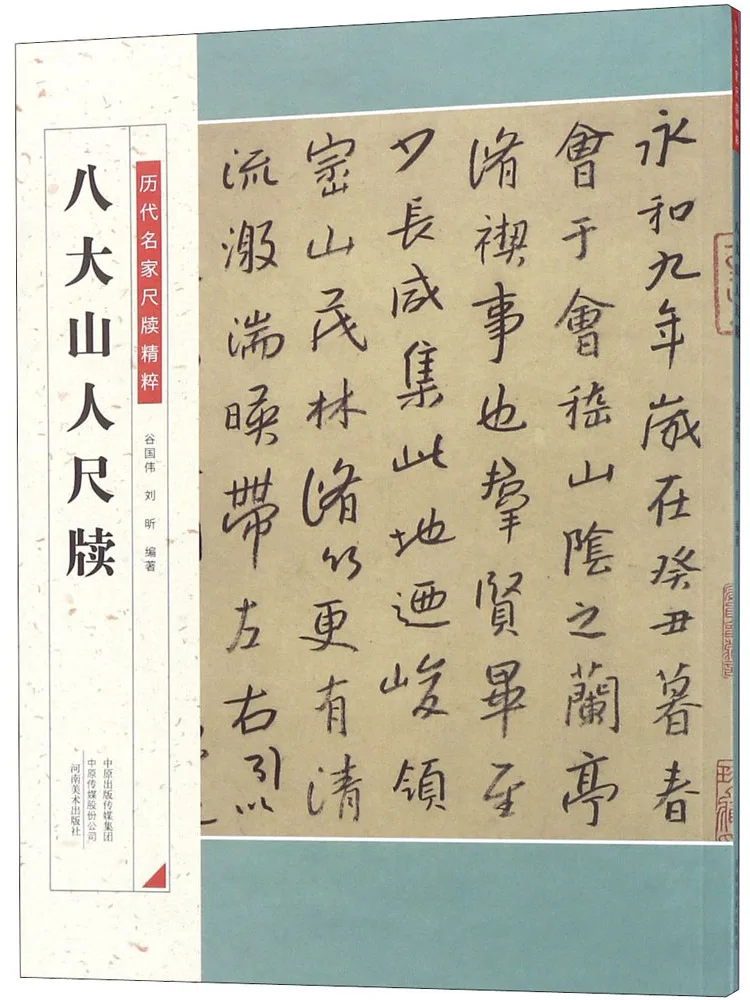 八大山人尺牍
历代名家尺牍精粹
谷国伟 刘昕 编著
中原出版传媒集团
中原传媒股份公司
河南美术出版社
永和九年歲在癸丑暮春
會于會嵇山陰之蘭亭
脩禊事也羣賢畢至
少長咸集此地迺峻領
崈山茂林脩竹更有清
流激湍暎帶左右引以
历代名家尺牍精粹